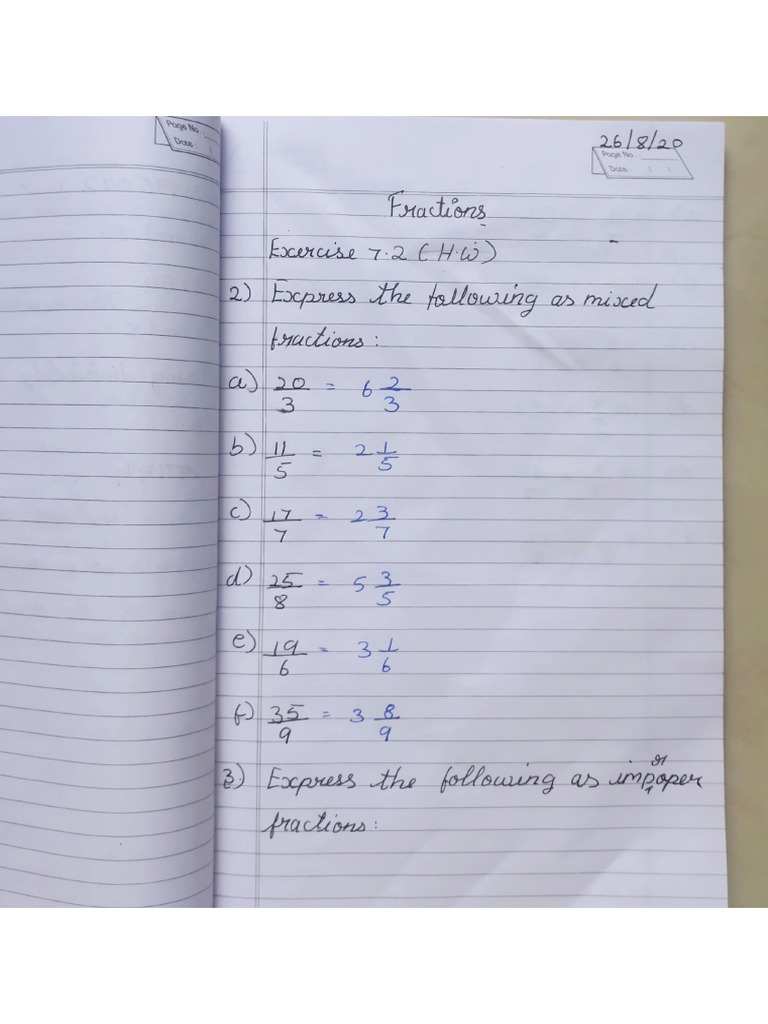 Page No.
Date
26/8/20
Page No.
Date
Fractions
Exercise 7.2 (H.W)
2) Express the following as mixed
fractions:
a) 20/3 = 6 2/3
b) 11/5 = 2 1/5
c) 17/7 = 2 3/7
d) 25/8 = 5 3/5
e) 19/6 = 3 1/6
f) 35/9 = 3 8/9
3.) Express the following as improper
fractions: